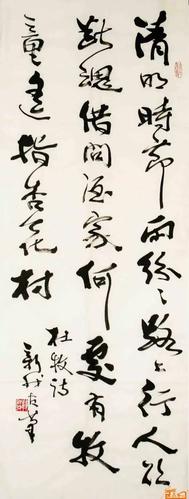 清明時節雨紛〻路上行人欲
斷魂借問酒家何處有牧
童遙指杏花村
杜牧詩